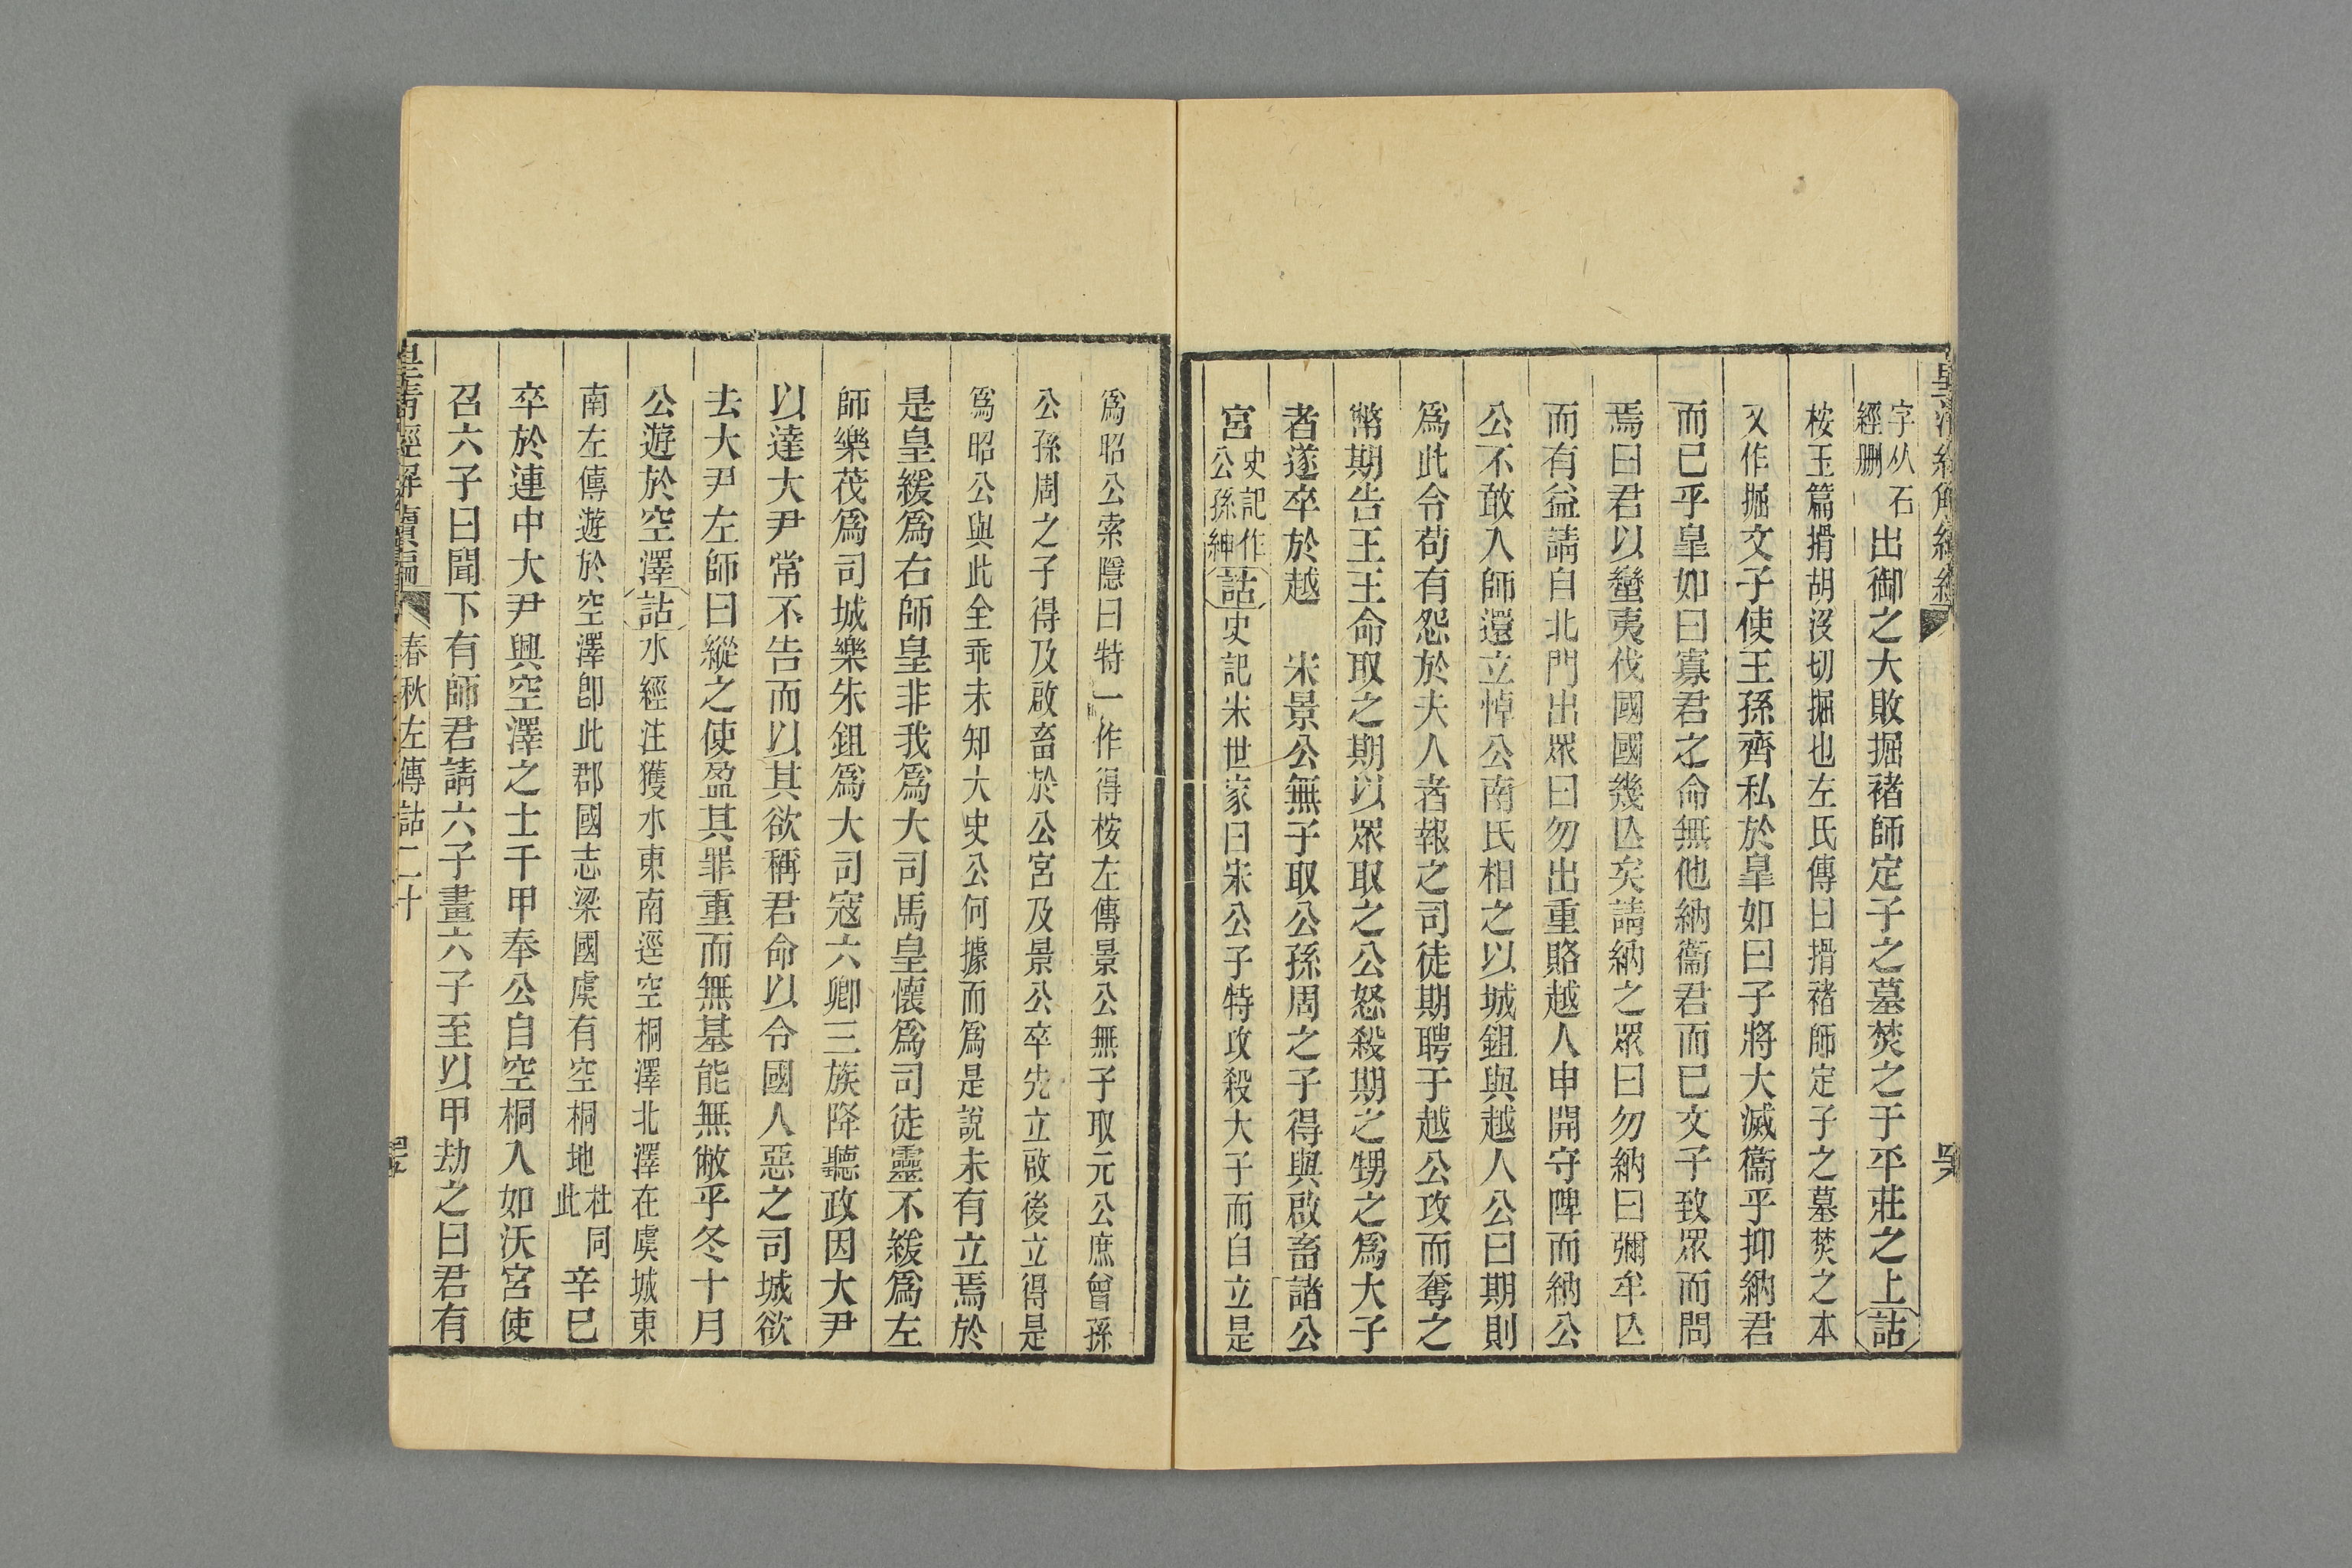 字从石經刪出御之大敗掘褚師定子之墓焚之于平莊之上詁
桉玉篇搰胡沒切掘也左氏傳曰搰褚師定子之墓焚之本
又作掘文子使王孫齊私於皐如曰子將大滅衞乎抑納君
而已乎皐如曰寡君之命無他納衞君而已文子致眾而問
焉曰君以蠻夷伐國國幾亾矣請納之眾曰勿納曰彌牟亾
而有益請自北門出眾曰勿出重賂越人申開守陴而納公
公不敢入師還立悼公南氏相之以城鉏與越人公曰期則
爲此令苟有怨於夫人者報之司徒期聘于越公攻而奪之
幣期告王王命取之期以眾取之公怒殺期之甥之爲大子
者遂卒於越 宋景公無子取公孫周之子得與啟畜諸公
宮史記作公孫紳詁史記宋世家曰宋公子特攻殺大子而自立是
爲昭公索隱曰特一作得桉左傳景公無子取元公庶曾孫
公孫周之子得及啟畜於公宮及景公卒先立啟後立得是
爲昭公與此全乖未知大史公何據而爲是說未有立焉於
是皇緩爲右師皇非我爲大司馬皇懷爲司徒靈不緩爲左
師樂茷爲司城樂朱鉏爲大司寇六卿三族降聽政因大尹
以達大尹常不告而以其欲稱君命以令國人惡之司城欲
去大尹左師曰縱之使盈其罪重而無基能無敝乎冬十月
公遊於空澤詁水經注獲水東南逕空桐澤北澤在虞城東
南左傳遊於空澤卽此郡國志梁國虞有空桐地杜同此辛巳
卒於連中大尹興空澤之士千甲奉公自空桐入如沃宮使
召六子曰聞下有師君請六子畫六子至以甲劫之曰君有
皇清經解續編 春秋左傳詁二十